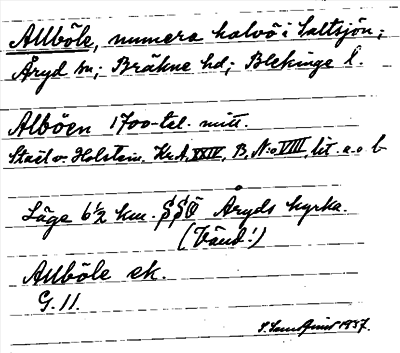 Allböle, numera halvö i Saltsjön;
Åryd sn; Bräkne hd; Blekinge l.
Alböen 1700-tal. mitt.
Staël v. Holstein. Kr.A, XXIV, B, N:o VIII, lit. a o b
Läge 6½ km. SSÖ Åryds kyrka.
(Vänd!)
Allböle ek.
G. 11.
1937.